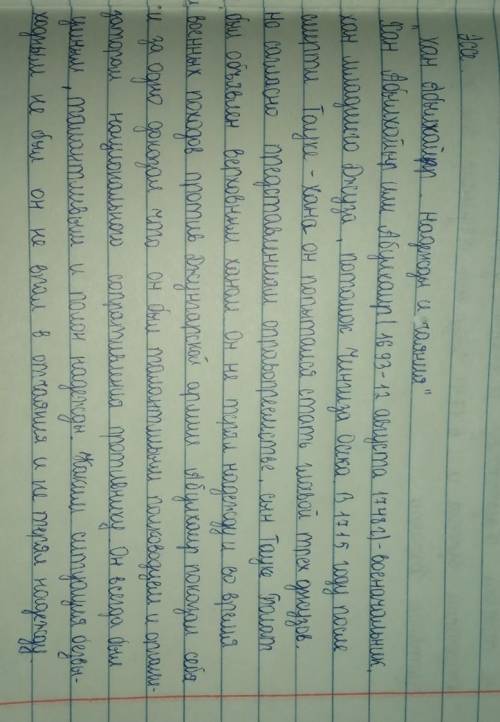 Эссе
"Хан Абылхайыр. Надежды и чаяния"
Хан Абылхайыр или Абулхаир (1693-12 августа 1748г)-военачальник,
хан младшего Джуза, потомок Чингиза Осека. В 1715 году после
смерти Тауке-Хана он попытался стать главой трех джузов.
Но согласно представлениям оправопреемстве, сын Тауке Болат
был объявлен верховным ханом Он не терял надежду и во время
военных походов против Джунгарской армии Абулхаир показал себя
и за одно доказал что он был талантливым полководцем и органи-
затором национального сопративления противнику Он всегда был
умным, талантливым и полон надежды. Какими ситуация безвы-
ходным не был он не впал в отчаяния и не терял надежду.